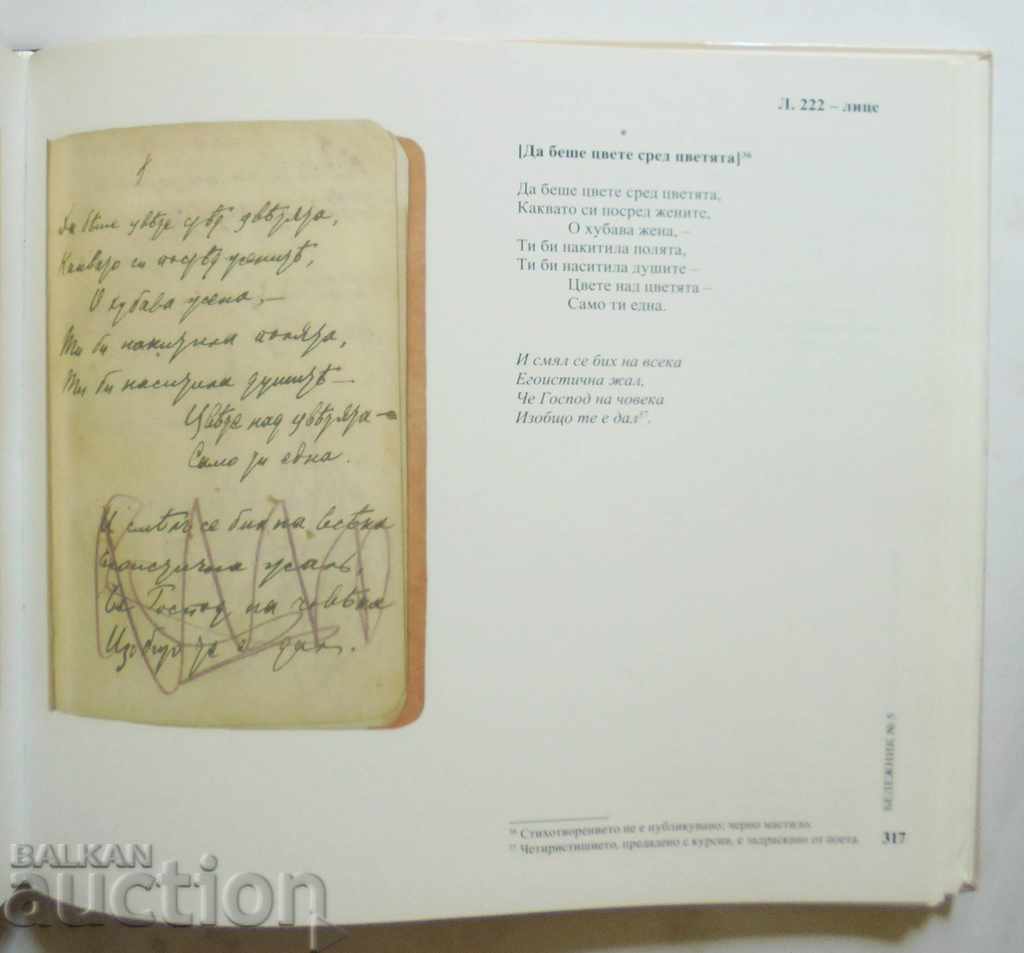 Да бѣше цвѣте срѣд цвѣтята,
Каквато си посрѣд женитѣ,
О хубава жена, –
Ти би накитила полята,
Ти би наситила душитѣ –
Цвѣте над цвѣтята –
Само ти една.
И смѣлъ се бих на всѣка
Егоистична жаль,
Че Господ на човѣка
Изобщо те е далъ.
Л. 222 – лице
[Да беше цвете сред цветята]³⁶
Да беше цвете сред цветята,
Каквато си посред жените,
О хубава жена, –
Ти би накитила полята,
Ти би наситила душите –
Цвете над цветята –
Само ти една.
И смял се бих на всека
Егоистична жал,
Че Господ на човека
Изобщо те е дал³⁷.
БЕЛЕЖНИК № 5
³⁶ Стихотворението не е публикувано; черно мастило.
³⁷ Четиристишието, предадено с курсив, е задраскано от поета.
317
BALKAN
auction